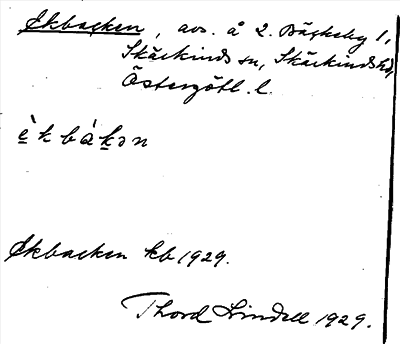 Ekbacken, avs. å 2. Bäckeby 1,
Skärkinds sn, Skärkinds hd,
Östergötl. l.
èkbàkən
Ekbacken kb 1929.
Thord Lindell 1929.